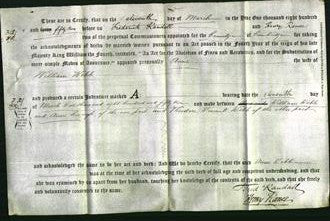 These are to Certify, that on the eleventh day of March in the Year One thousand eight hundred
and fifty before Frederick Randall and Henry Rance
two of the perpetual Commissioners appointed for the County of for
taking the acknowledgments of deeds by married women pursuant to an Act passed in the Fourth year of the reign of his late
Majesty King William the Fourth, intituled "An Act for the Abolition of Fines and Recoveries, and for the Substitution of
more simple Modes of Assurance," appeared personally Ann
William Webb
and produced a certain Indenture marked A bearing date the eleventh
day of March One thousand eight hundred and fifty and made between William Webb
and Ann his wife of the one part and of the other part
and acknowledged the same to be her act and deed: And to Certify, that the said Ann Webb
was at the time of her acknowledging the said deed of full age and competent understanding, and that
she was examined by us apart from her husband, touching her knowledge of the contents of the said deed, and that she freely
and voluntarily consented to the same.
Fred Randall
Henry Rance